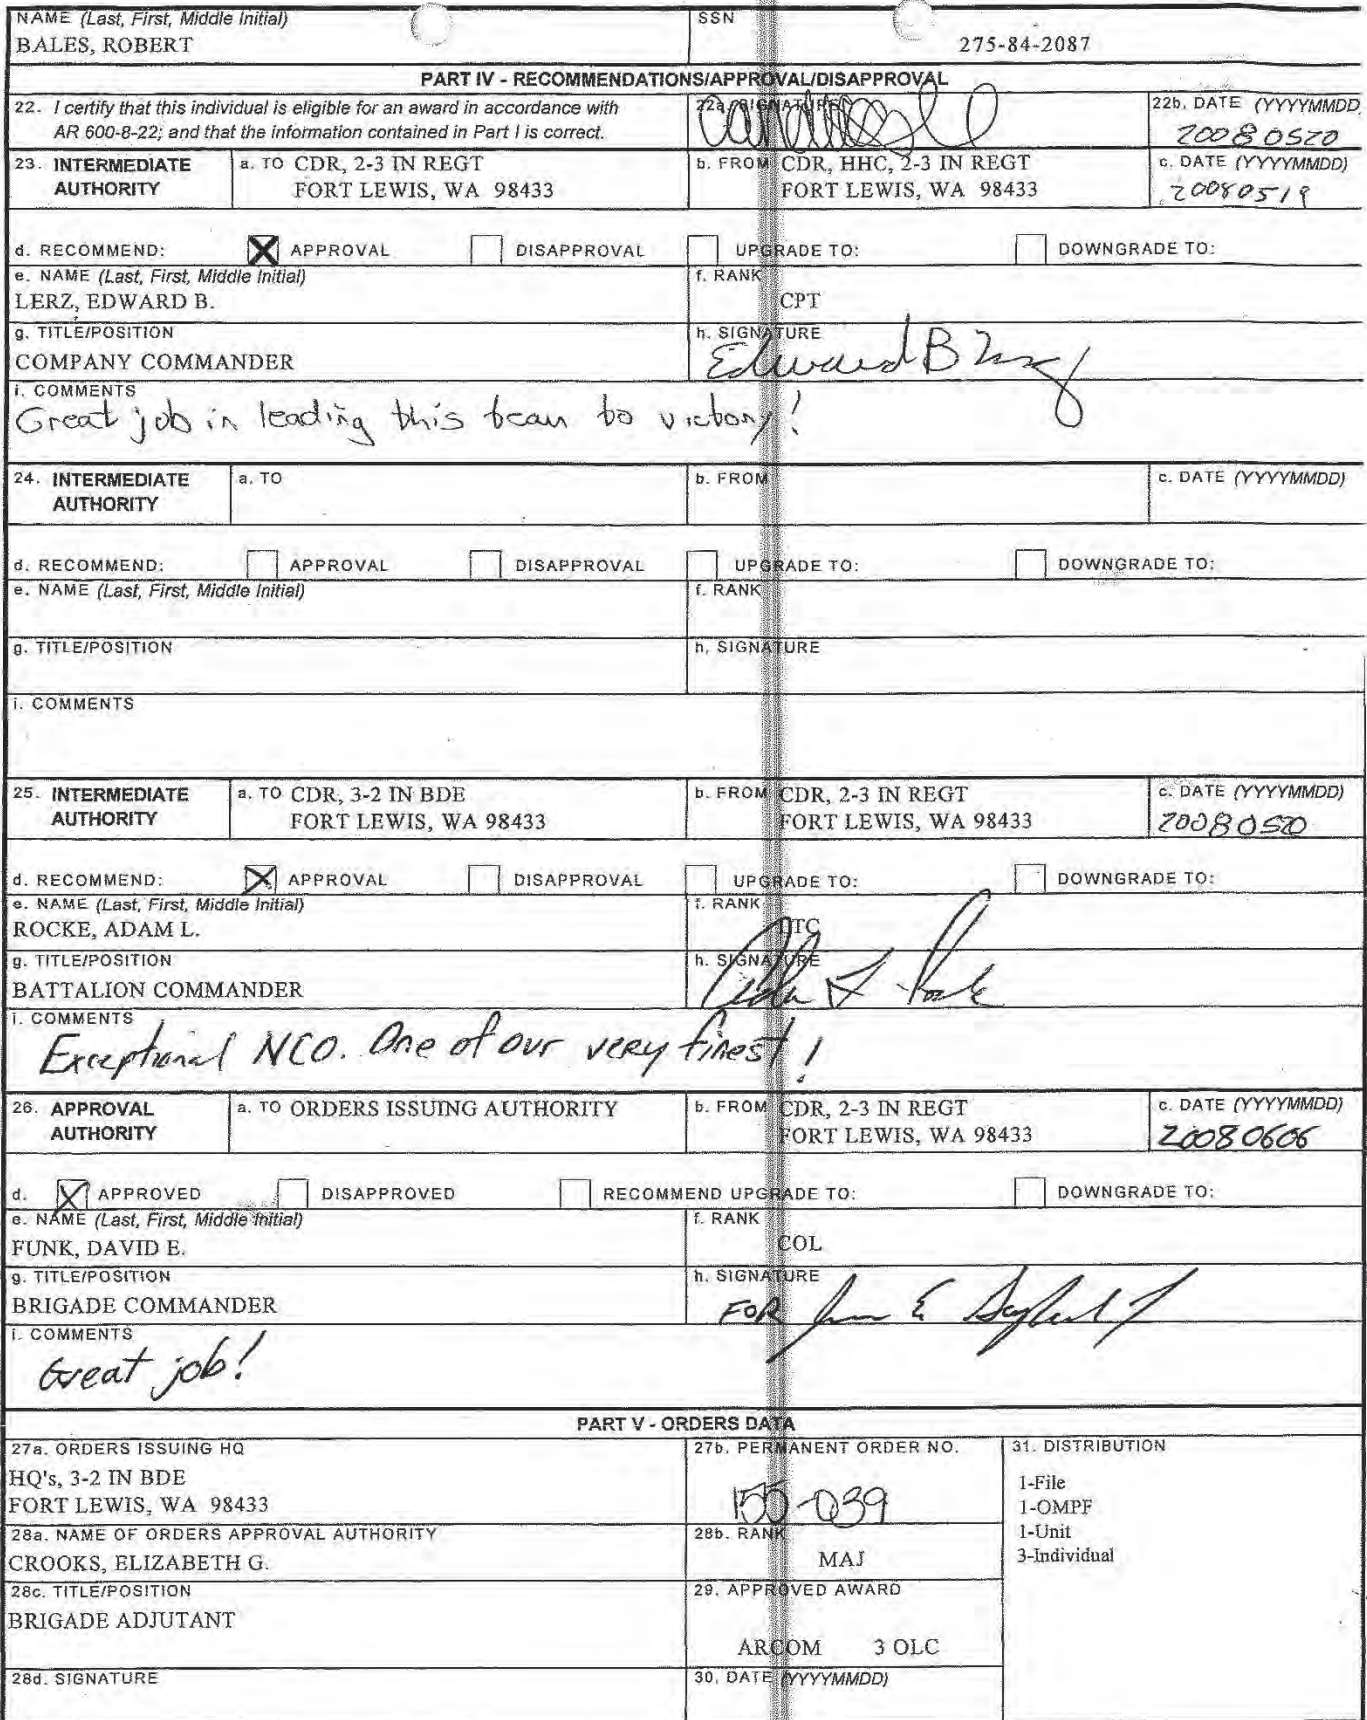 NAME (Last, First, Middle Initial)
BALES, ROBERT
SSN
275-84-2087
PART IV - RECOMMENDATIONS/APPROVAL/DISAPPROVAL
22. I certify that this individual is eligible for an award in accordance with
AR 600-8-22; and that the information contained in Part I is correct.
22a. SIGNATURE
22b. DATE (YYYYMMDD)
20080520
23. INTERMEDIATE
AUTHORITY
a. TO CDR, 2-3 IN REGT
FORT LEWIS, WA 98433
b. FROM CDR, HHC, 2-3 IN REGT
FORT LEWIS, WA 98433
c. DATE (YYYYMMDD)
20080519
d. RECOMMEND: X APPROVAL DISAPPROVAL UPGRADE TO: DOWNGRADE TO:
e. NAME (Last, First, Middle Initial)
LERZ, EDWARD B.
f. RANK
CPT
g. TITLE/POSITION
COMPANY COMMANDER
h. SIGNATURE
Edward B Lerz
i. COMMENTS
Great job in leading this team to victory!
24. INTERMEDIATE
AUTHORITY
a. TO
b. FROM
c. DATE (YYYYMMDD)
d. RECOMMEND: APPROVAL DISAPPROVAL UPGRADE TO: DOWNGRADE TO:
e. NAME (Last, First, Middle Initial)
f. RANK
g. TITLE/POSITION
h. SIGNATURE
i. COMMENTS
25. INTERMEDIATE
AUTHORITY
a. TO CDR, 3-2 IN BDE
FORT LEWIS, WA 98433
b. FROM CDR, 2-3 IN REGT
FORT LEWIS, WA 98433
c. DATE (YYYYMMDD)
20080520
d. RECOMMEND: X APPROVAL DISAPPROVAL UPGRADE TO: DOWNGRADE TO:
e. NAME (Last, First, Middle Initial)
ROCKE, ADAM L.
f. RANK
LTC
g. TITLE/POSITION
BATTALION COMMANDER
h. SIGNATURE
i. COMMENTS
Exceptional NCO. One of our very finest!
26. APPROVAL
AUTHORITY
a. TO ORDERS ISSUING AUTHORITY
b. FROM CDR, 2-3 IN REGT
FORT LEWIS, WA 98433
c. DATE (YYYYMMDD)
20080606
d. X APPROVED DISAPPROVED RECOMMEND UPGRADE TO: DOWNGRADE TO:
e. NAME (Last, First, Middle Initial)
FUNK, DAVID E.
f. RANK
COL
g. TITLE/POSITION
BRIGADE COMMANDER
h. SIGNATURE
FOR
i. COMMENTS
Great job!
PART V - ORDERS DATA
27a. ORDERS ISSUING HQ
HQ's, 3-2 IN BDE
FORT LEWIS, WA 98433
27b. PERMANENT ORDER NO.
155-039
31. DISTRIBUTION
1-File
1-OMPF
1-Unit
3-Individual
28a. NAME OF ORDERS APPROVAL AUTHORITY
CROOKS, ELIZABETH G.
28b. RANK
MAJ
28c. TITLE/POSITION
BRIGADE ADJUTANT
29. APPROVED AWARD
ARCOM 3 OLC
28d. SIGNATURE
30. DATE (YYYYMMDD)